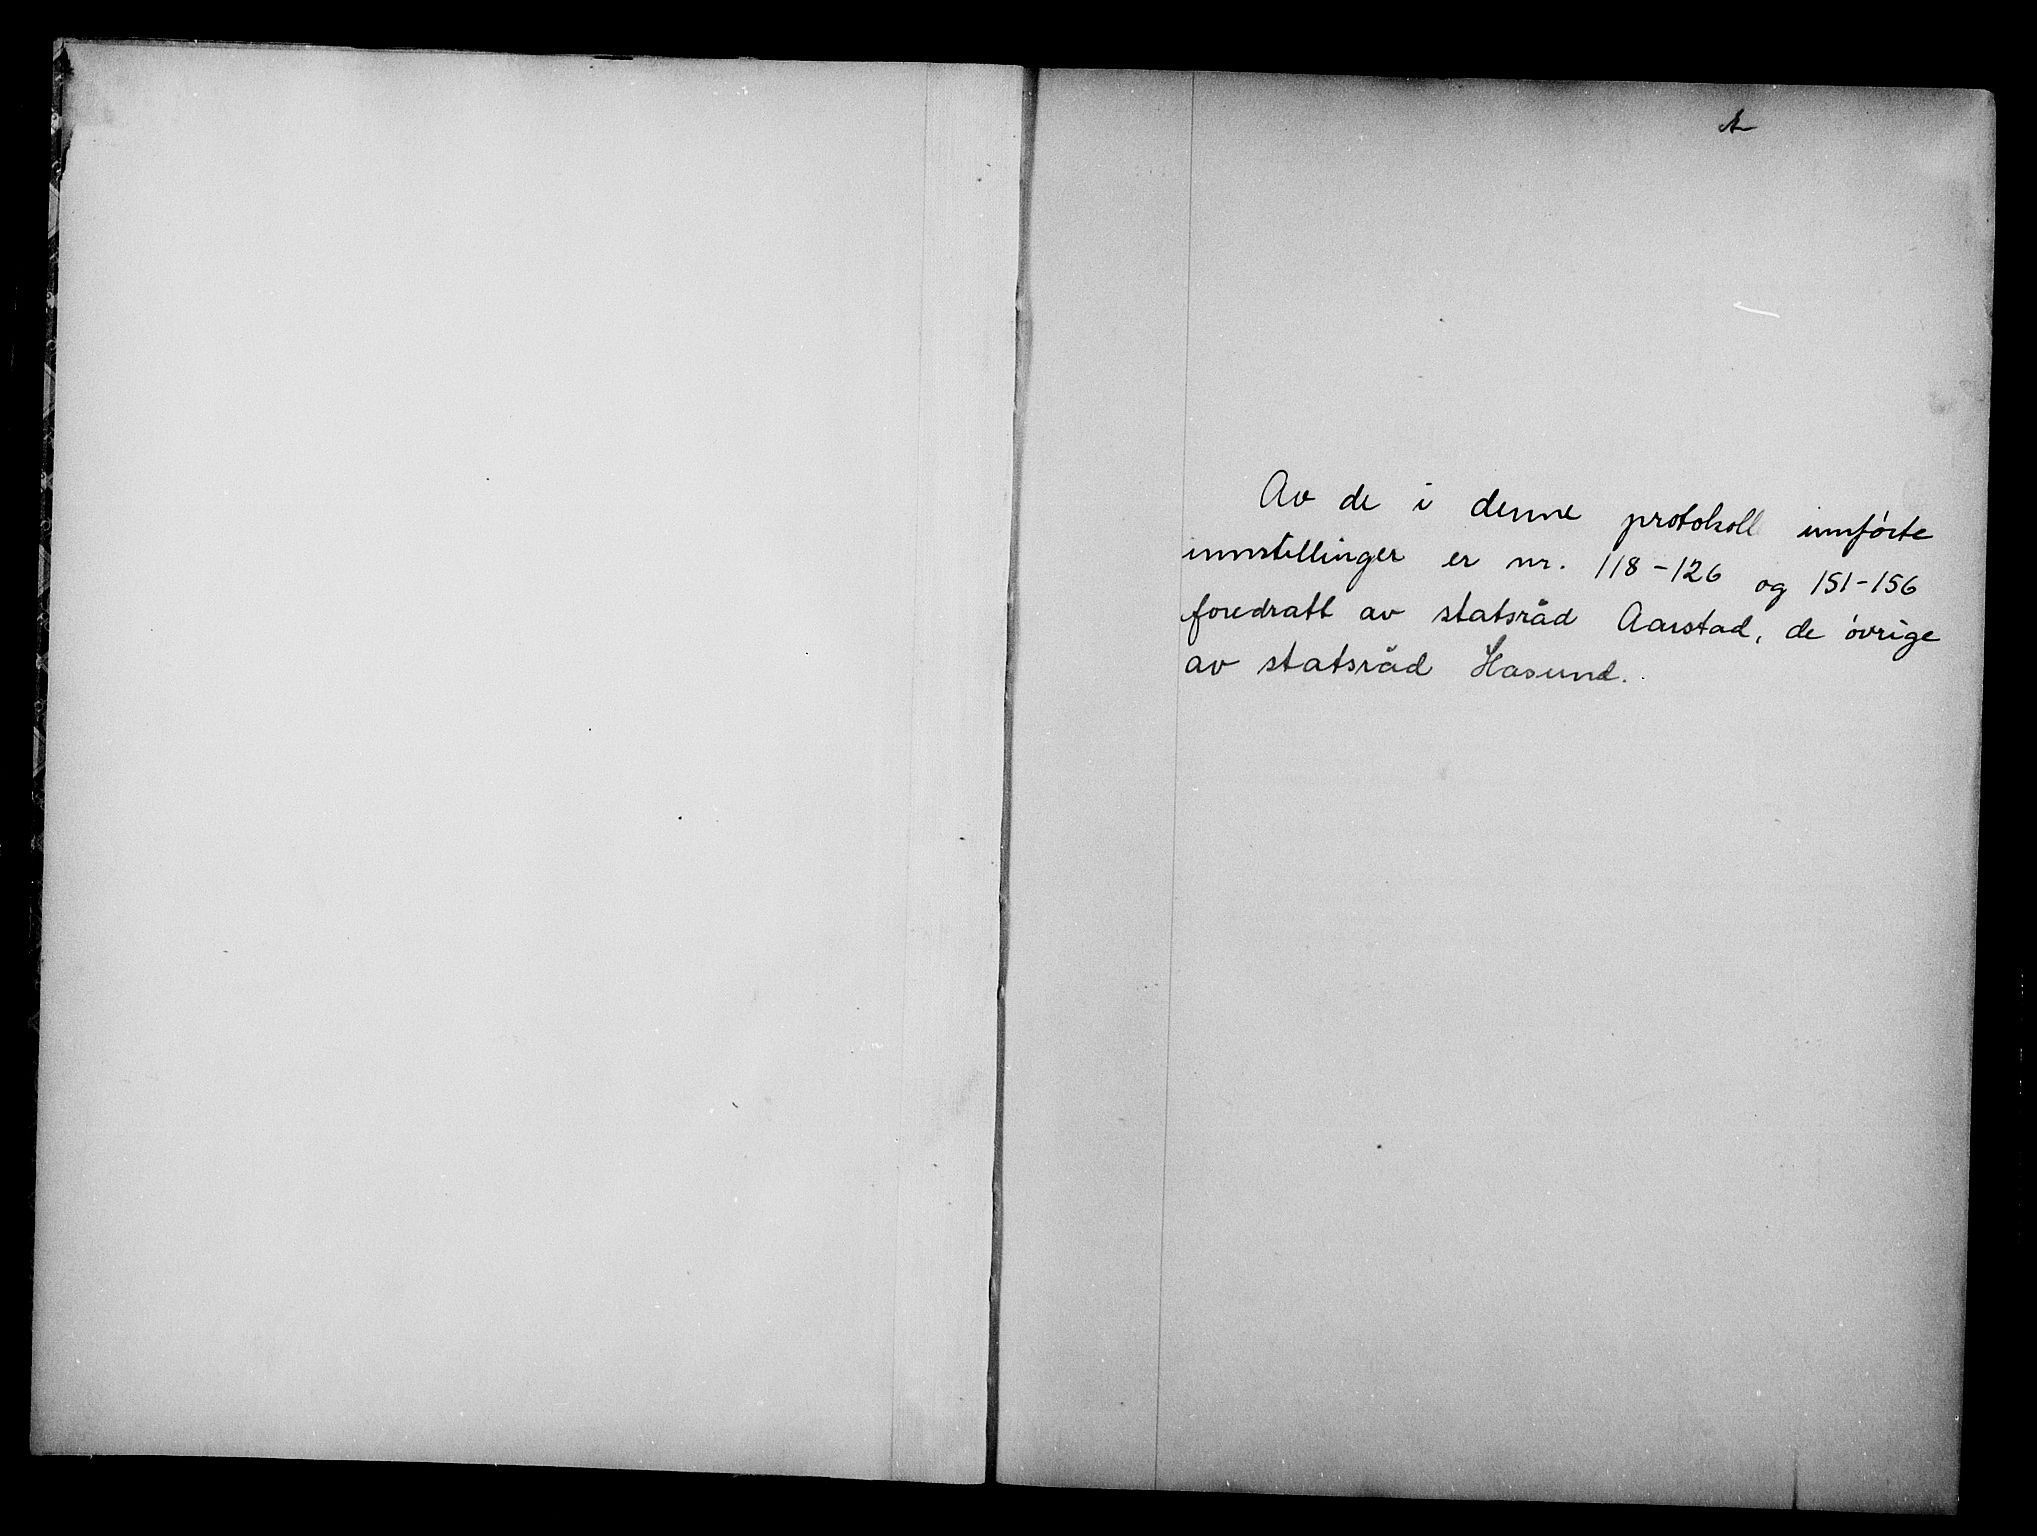 Av de i denne protokoll innførte
innstillinger er nr. 118-126 og 151-156
foredratt av statsråd Aarstad, de øvrige
av statsråd Hasund.